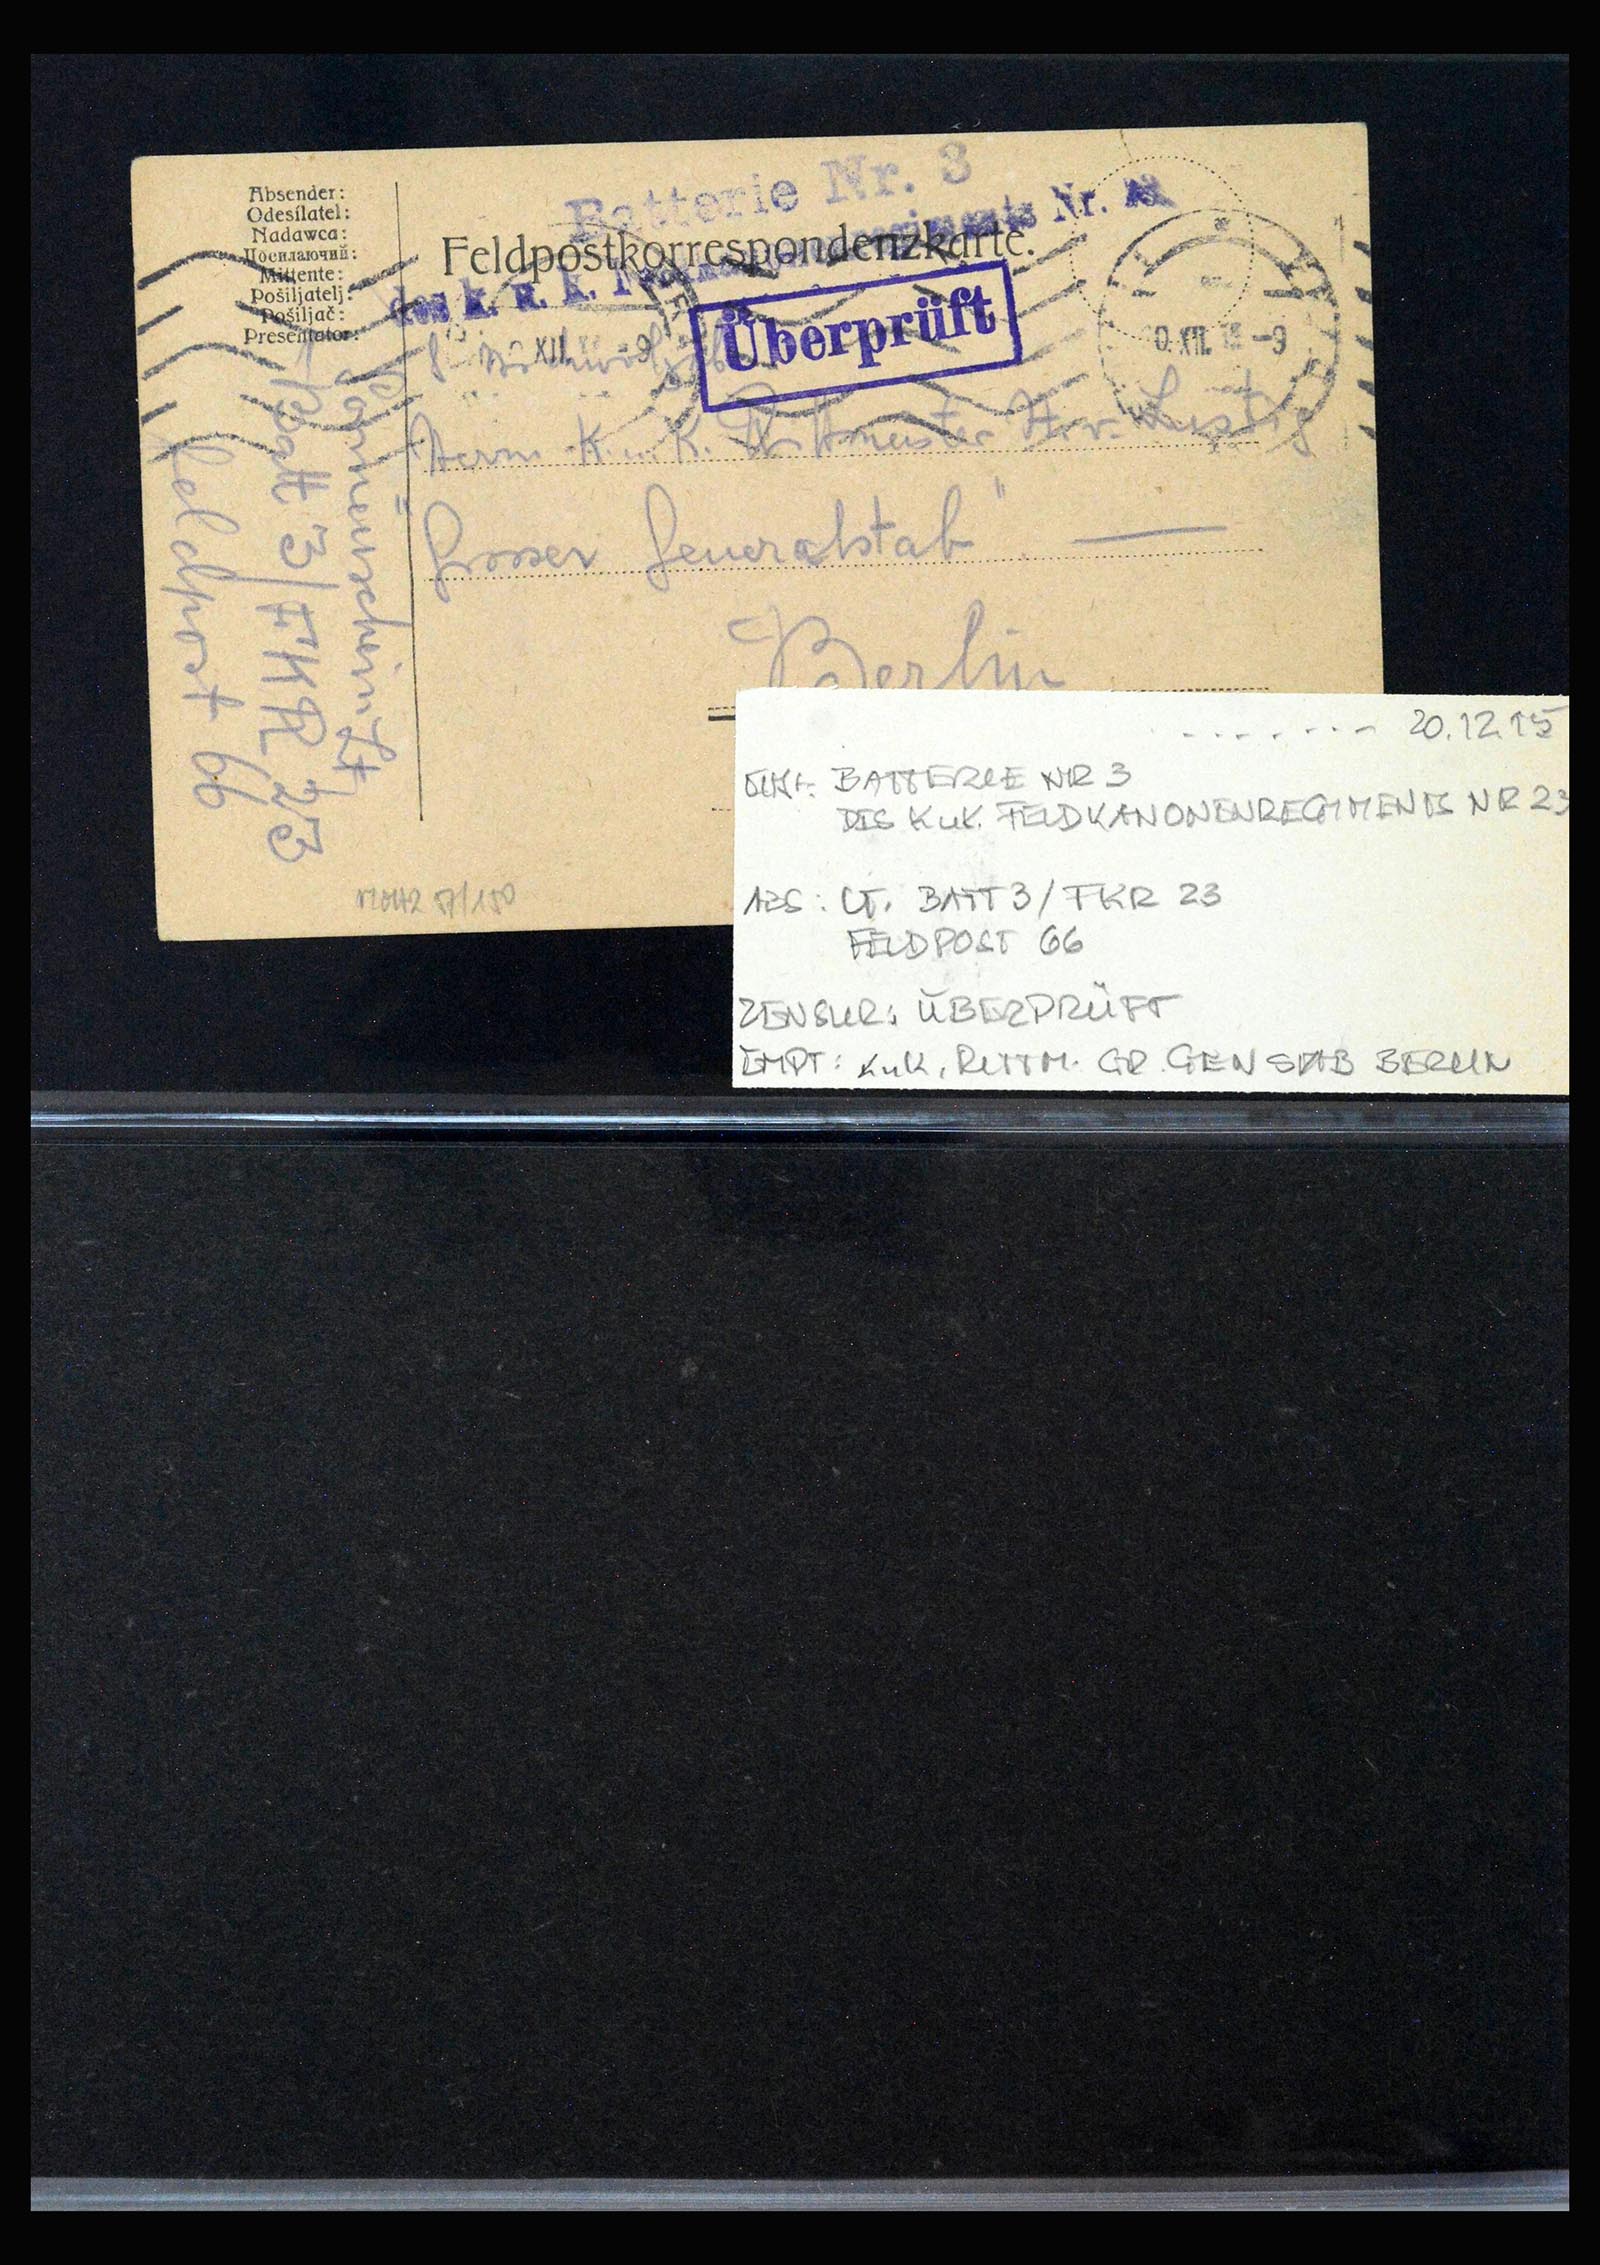 Batterie Nr. 3
des k. u. k. Nr.
Absender:
Odesílatel:
Nadawca:
Посилаючий:
Mittente:
Pošiljatelj:
Pošiljač:
Presentator:
Feldpostkorrespondenzkarte.
Überprüft
XII. -9
Herrn K. u. K. Rittmeister Lustig
"Grosser Generalstab" —
Berlin
Batt 3/FKR 23
Feldpost 66
20.12.15
BATTERIE NR 3
DES KuK. FELDKANONENREGIMENTS NR 23
ABS: LT. BATT 3/FKR 23
FELDPOST 66
ZENSUR: ÜBERPRÜFT
EMPF: KuK. RITTM. GR. GENSTAB BERLIN